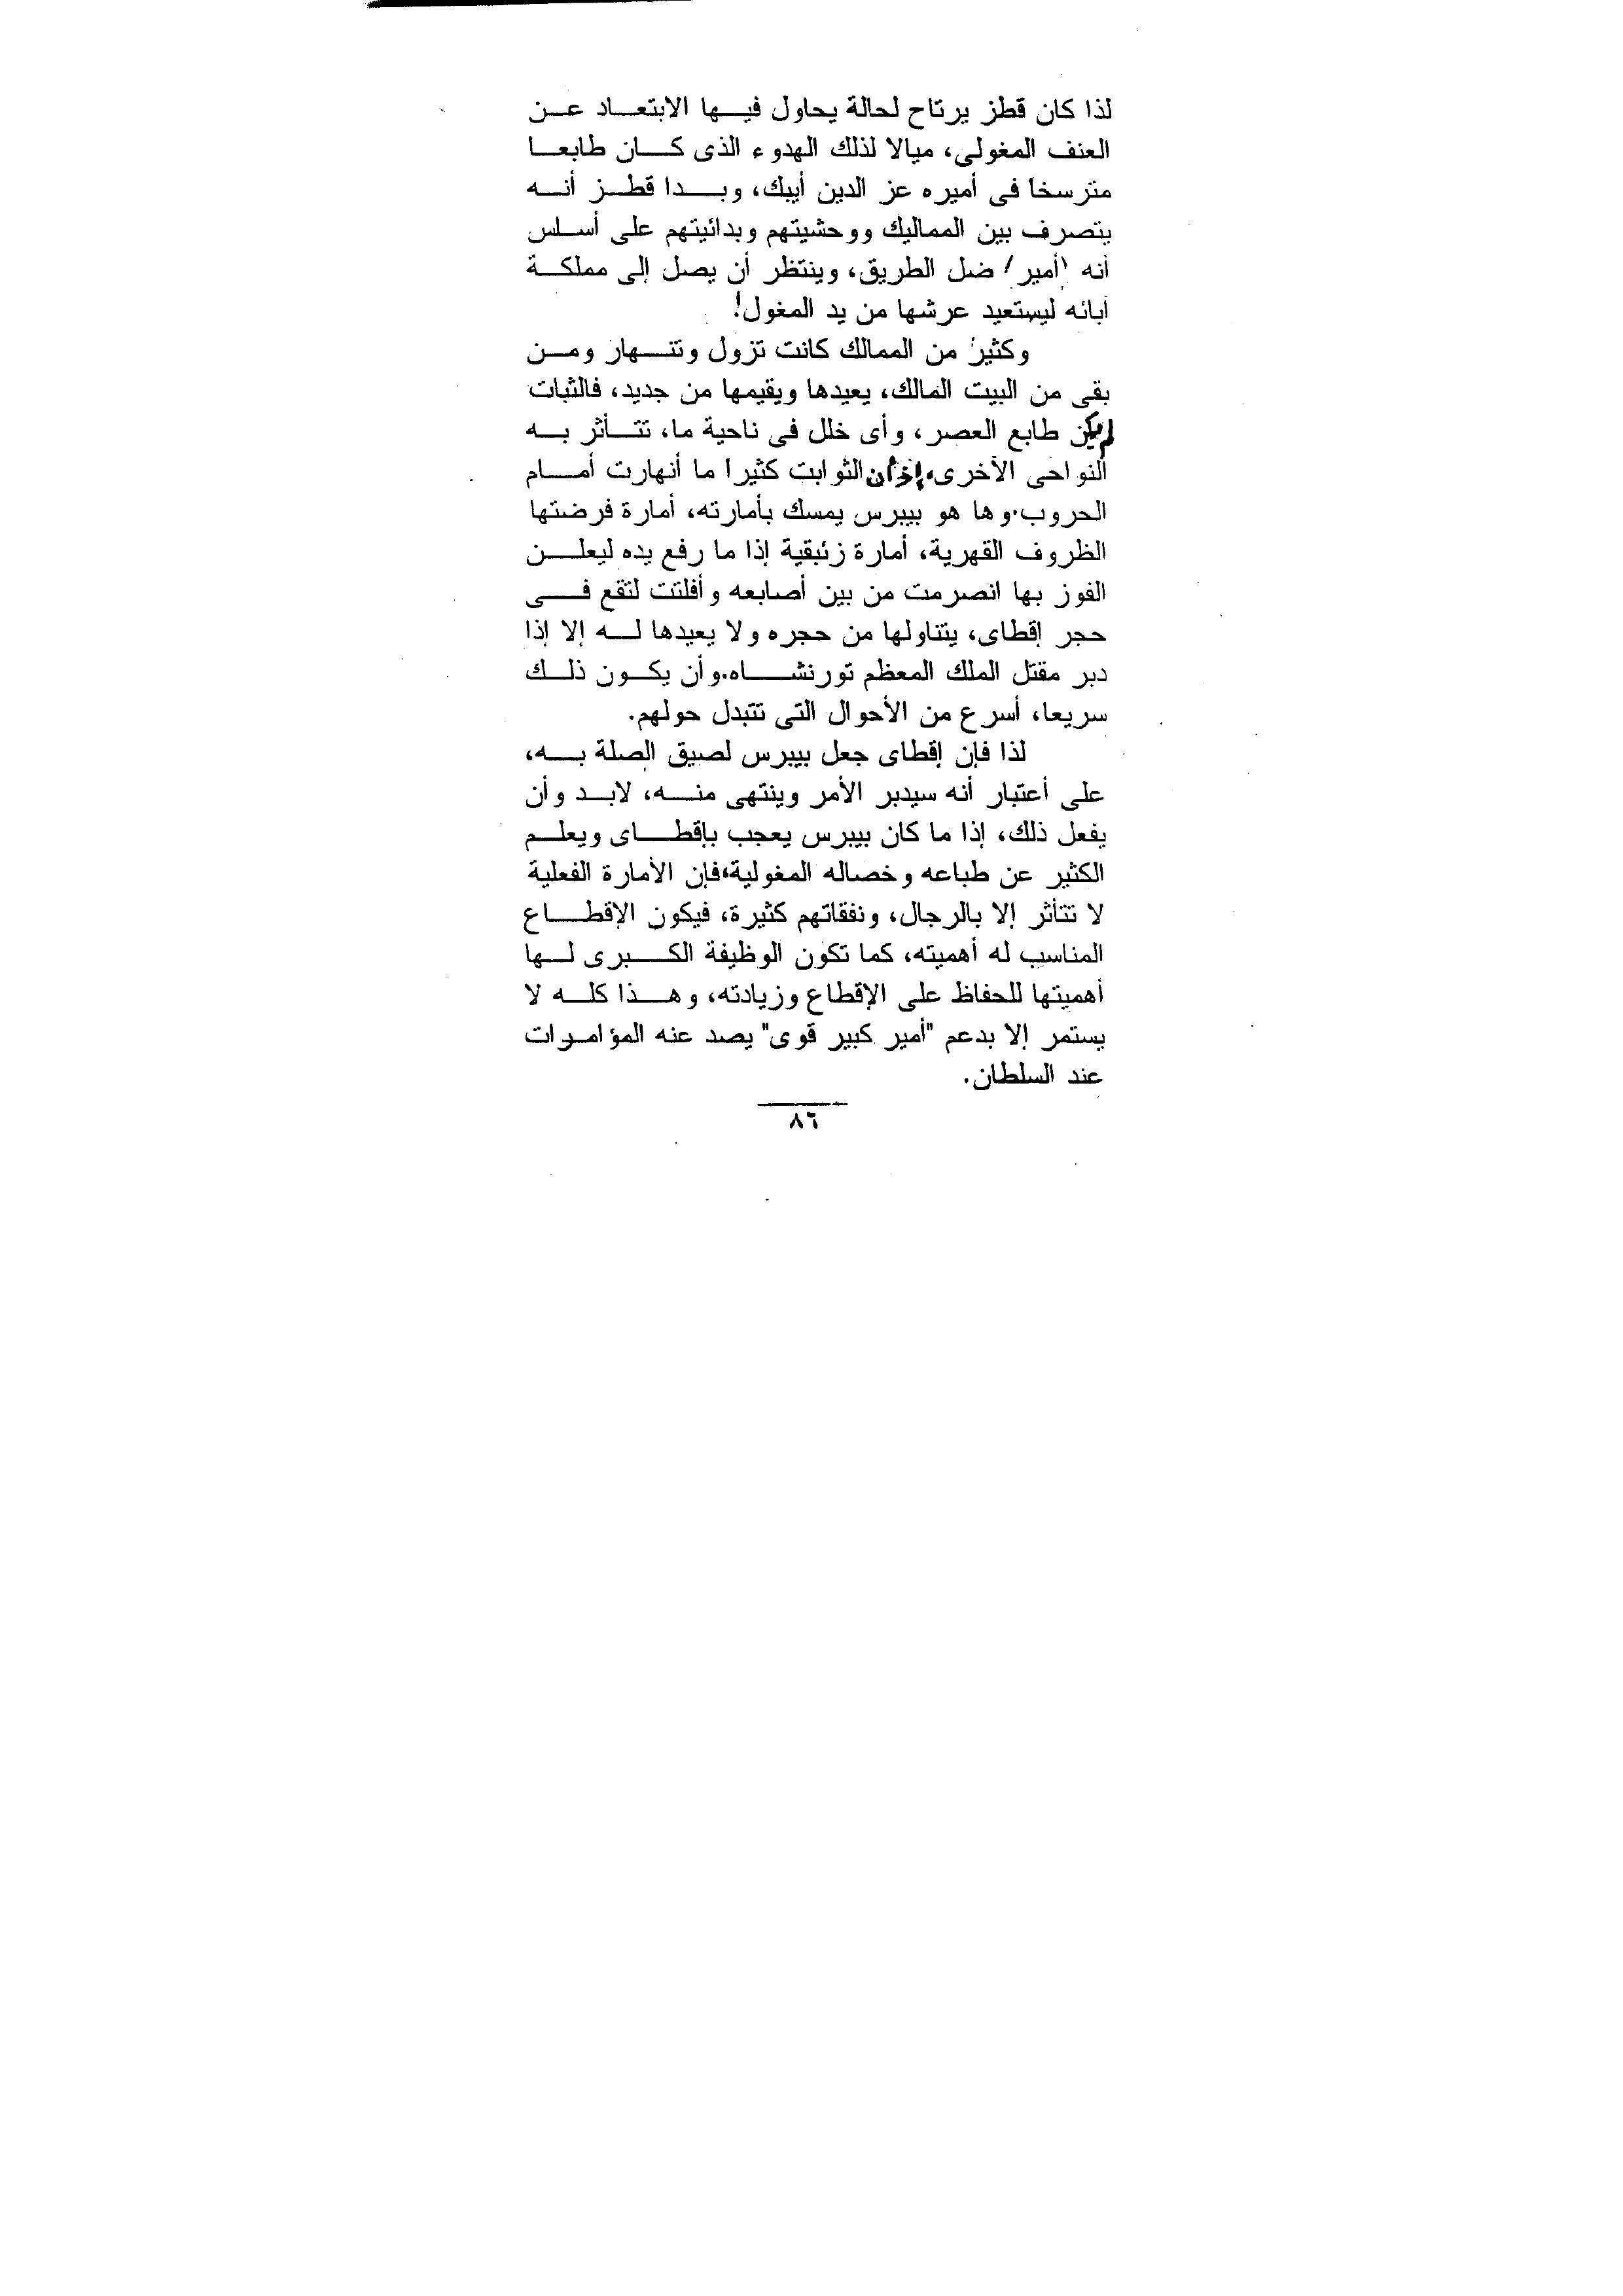 لذا كان قطز يرتاح لحالة يحاول فيها الابتعاد عن
العنف المغولى، ميالا لذلك الهدوء الذى كان طابعا
مترسخا فى أميره عز الدين أيبك، وبدا قطز أنه
يتصرف بين المماليك ووحشيتهم وبدائيتهم على أساس
أنه "أمير" ضل الطريق، وينتظر أن يصل إلى مملكة
أبائه ليستعيد عرشها من يد المغول!
وكثير من الممالك كانت تزول وتنهار ومن
بقى من البيت المالك، يعيدها ويقيمها من جديد، فالثبات
لم يكن طابع العصر، وأى خلل فى ناحية ما، تتأثر به
النواحى الأخرى، إذ أن الثوابت كثيرا ما أنهارت أمام
الحروب. وها هو بيبرس يمسك بأمارته، أمارة فرضتها
الظروف القهرية، أمارة زئبقية إذا ما رفع يده ليعلن
الفوز بها انصرمت من بين أصابعه وأفلتت لتقع فى
حجر إقطاى، يتناولها من حجره ولا يعيدها له إلا إذا
دبر مقتل الملك المعظم تورنشاه. وأن يكون ذلك
سريعا، أسرع من الأحوال التى تتبدل حولهم.
لذا فإن إقطاى جعل بيبرس لصيق الصلة به،
على أعتبار أنه سيدبر الأمر وينتهى منه، لابد وأن
يفعل ذلك، إذا ما كان بيبرس يعجب بإقطاى ويعلم
الكثير عن طباعه وخصاله المغولية، فإن الأمارة الفعلية
لا تتأثر إلا بالرجال، ونفقاتهم كثيرة، فيكون الإقطاع
المناسب له أهميته، كما تكون الوظيفة الكبرى لها
أهميتها للحفاظ على الإقطاع وزيادته، وهذا كله لا
يستمر إلا بدعم "أمير كبير قوى" يصد عنه المؤامرات
عند السلطان.
٨٦